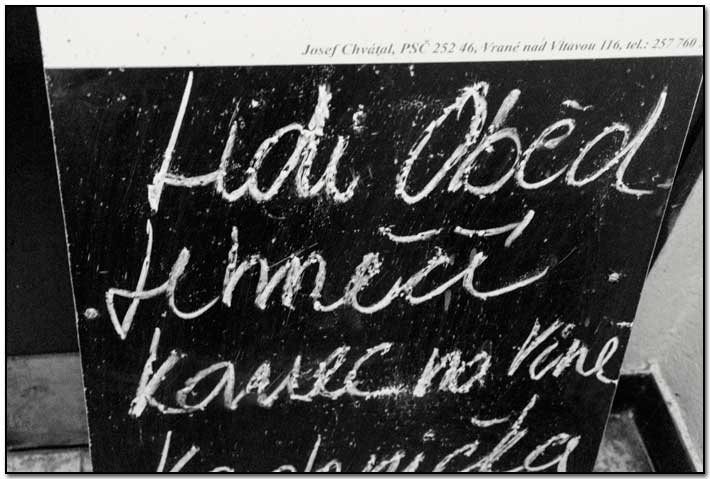 Josef Chvátal, PSČ 252 46, Vrané nad Vltavou 116, tel.: 257 760
Lidi Oběd
Jehněčí
kanec na víně